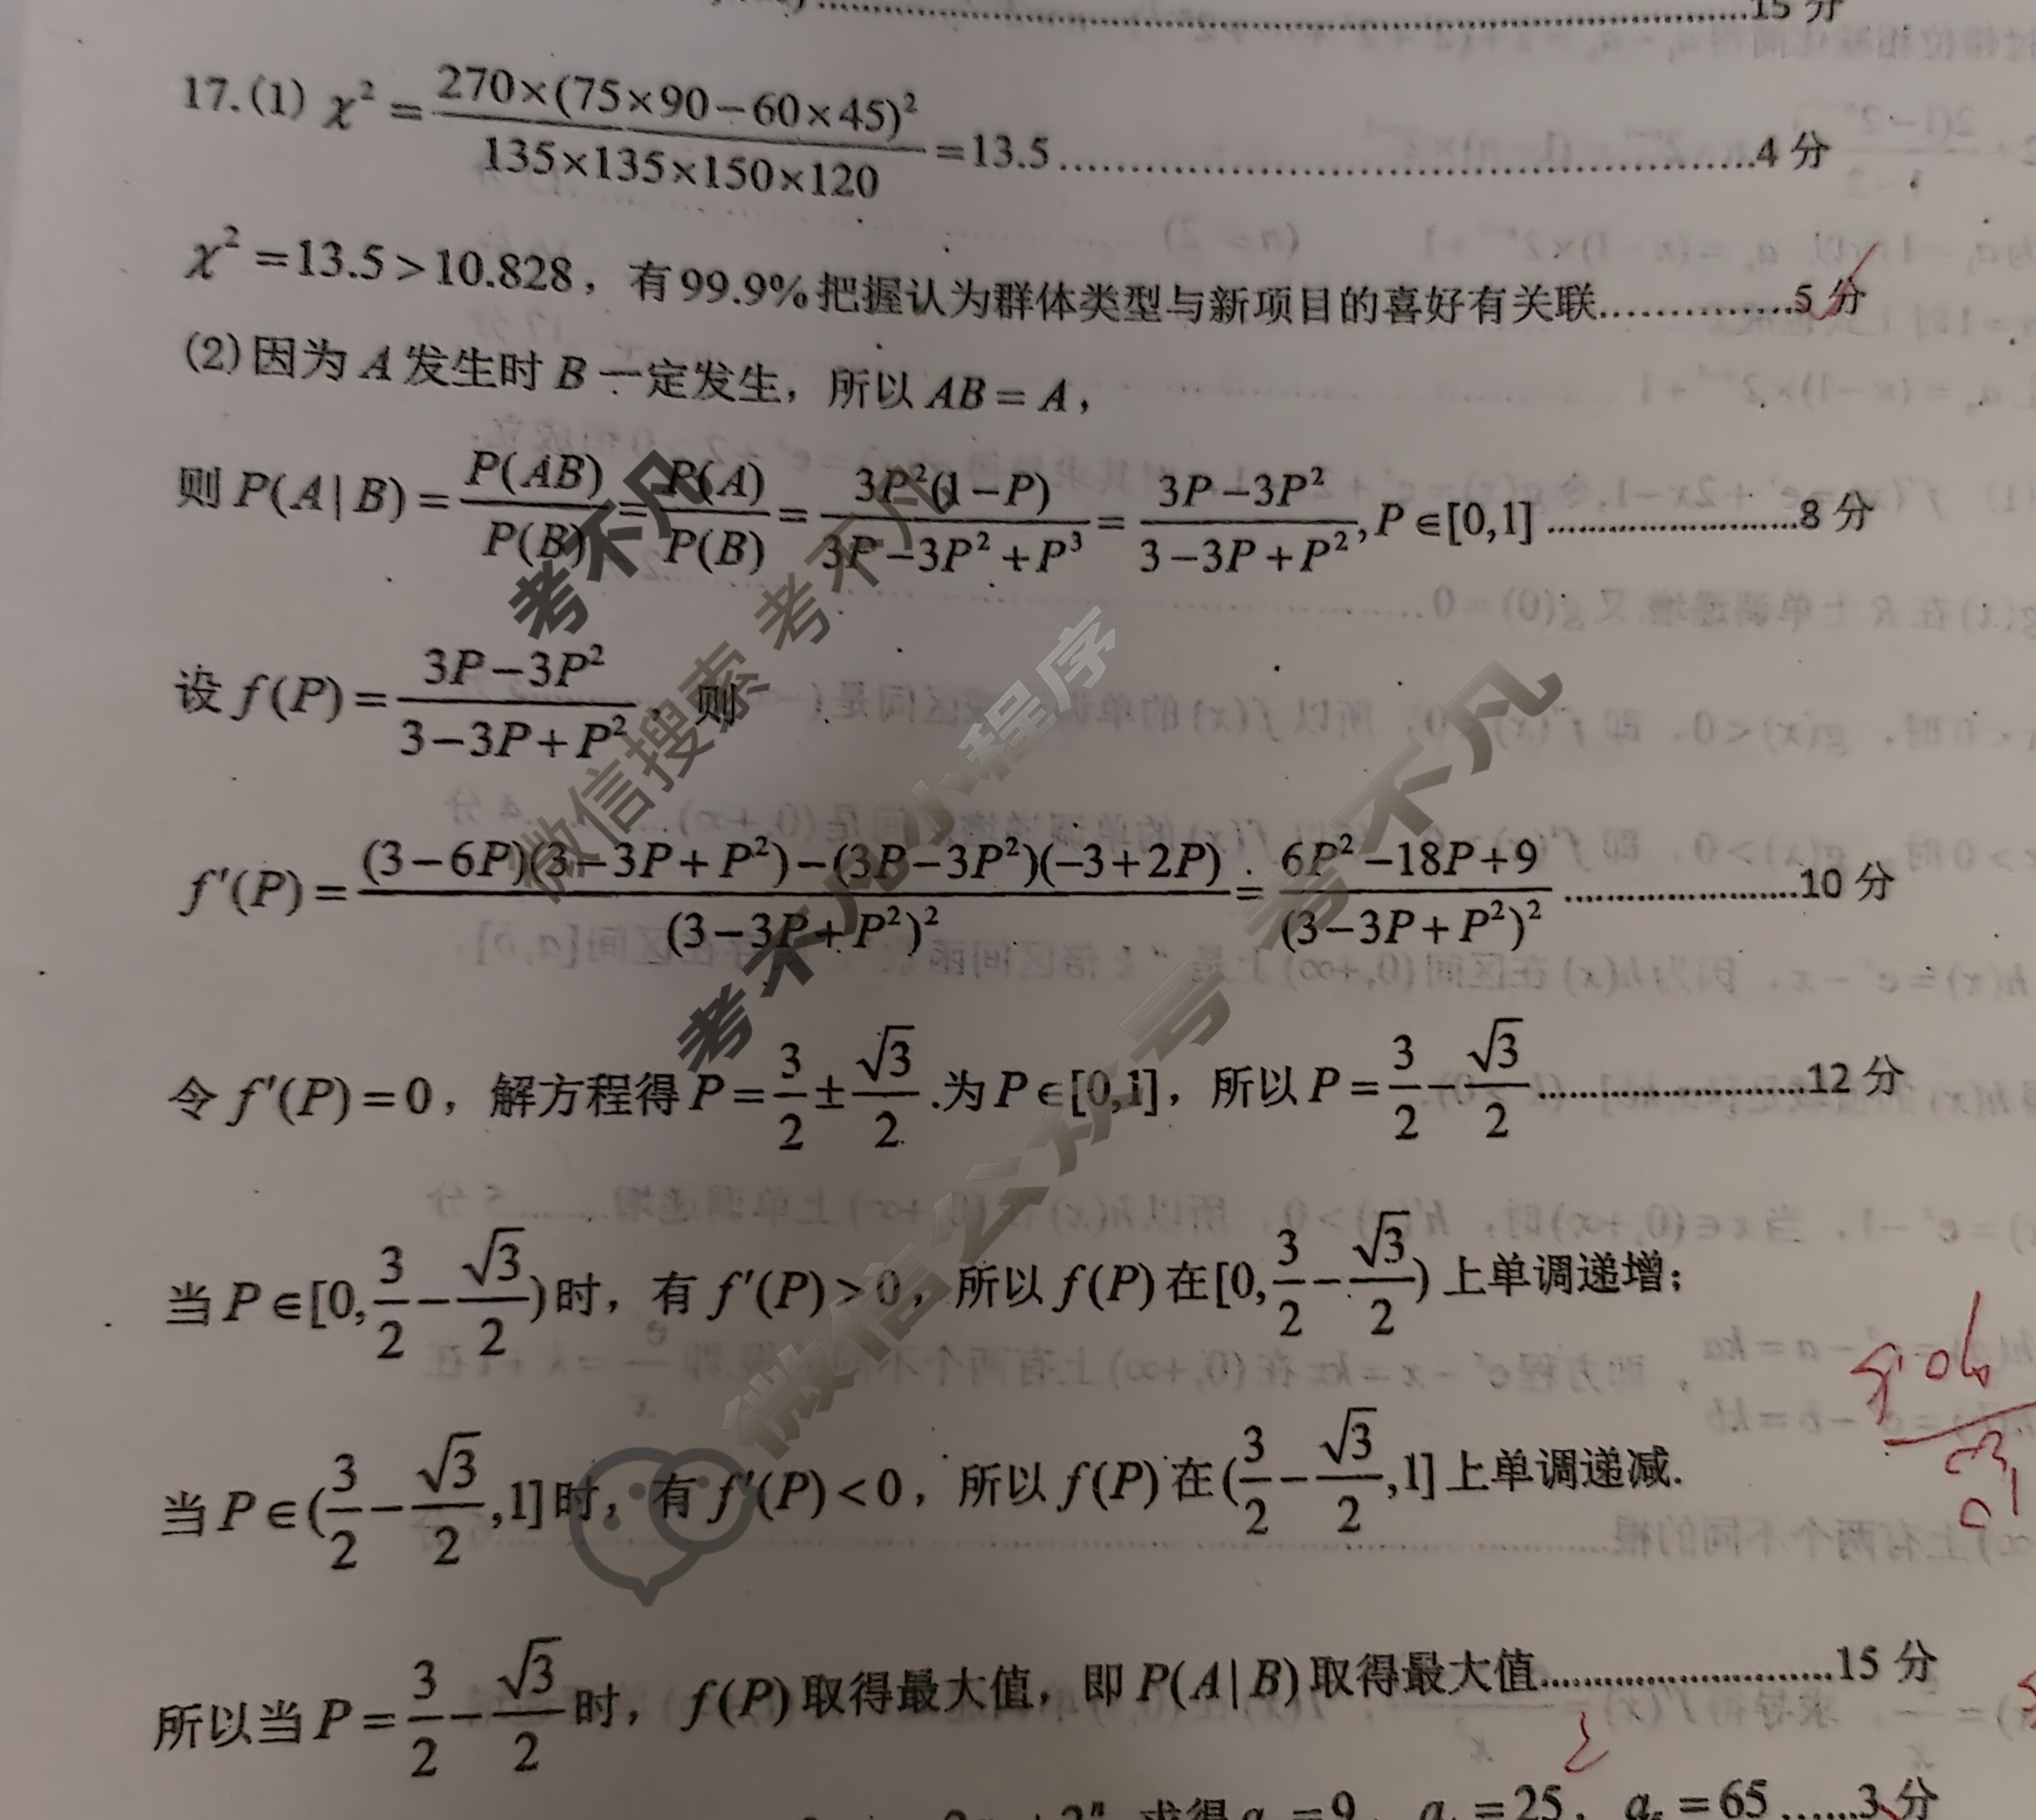 15 分
17.(1) χ² = 270×(75×90−60×45)² / 135×135×150×120 =13.5 ……………………4 分
χ² =13.5>10.828，有99.9%把握认为群体类型与新项目的喜好有关联……………5 分
(2)因为 A 发生时 B 一定发生，所以 AB = A，
则 P(A|B) = P(AB) / P(B) = P(A) / P(B) = 3P²(1−P) / 3P−3P²+P³ = 3P−3P² / 3−3P+P² , P∈[0,1] ……………………8 分
设 f(P) = 3P−3P² / 3−3P+P² ，则
f′(P) = (3−6P)(3−3P+P²)−(3P−3P²)(−3+2P) / (3−3P+P²)² = 6P²−18P+9 / (3−3P+P²)² ……………………10 分
令 f′(P) = 0，解方程得 P = 3/2 ± √3/2 .为 P∈[0,1]，所以 P = 3/2 − √3/2 ……………………12 分
当 P∈[0, 3/2 − √3/2 )时，有 f′(P) > 0，所以 f(P) 在[0, 3/2 − √3/2 ) 上单调递增；
当 P∈( 3/2 − √3/2 ,1]时，有 f′(P) < 0，所以 f(P) 在( 3/2 − √3/2 ,1] 上单调递减.
所以当 P = 3/2 − √3/2 时，f(P) 取得最大值，即 P(A|B) 取得最大值……………………15 分
求得 = 9 = 25 = 65 ……3 分
考不凡
微信搜索 考不凡
考不凡小程序
微信公众号 考不凡